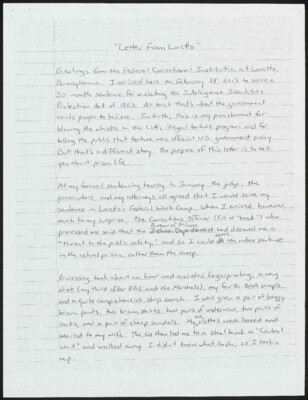 "Letter From Loretto"
Greetings from the Federal Correctional Institution at Loretto,
Pennsylvania. I arrived here on February 28, 2013 to serve a
30-month sentence for violating the Intelligence Identities
Protection Act of 1982. At least that's what the government
wants people to believe. In truth, this is my punishment for
blowing the whistle on the CIA's illegal torture program and for
telling the public that torture was official U.S. government policy.
But that's a different story. The purpose of this letter is to tell
you about prison life.
At my formal sentencing hearing in January, the judge, the
prosecutors, and my attorneys all agreed that I would serve my
sentence in Loretto's Federal Work Camp. When I arrived, however,
much to my surprise, the Corrections Officer (CO or "hack") who
processed me said that the
Bureau of Prisons
deemed me a
"threat to the public safety" and so I would
serve
the entire sentence
in the actual prison, rather than the camp.
Processing took about an hour and included fingerprinting, a mug
shot (my third after FBI and the Marshals), my fourth DNA sample,
and a quite comprehensive strip search. I was given a pair of baggy
brown pants, two brown shirts, two pairs of underwear, two pairs of
socks, and a pair of cheap sandals. My
own
clothes were boxed and
mailed to my wife. The CO then led me to a steel bunk in "Central
Unit" and walked away. I didn't know what to do, so I took a
nap.